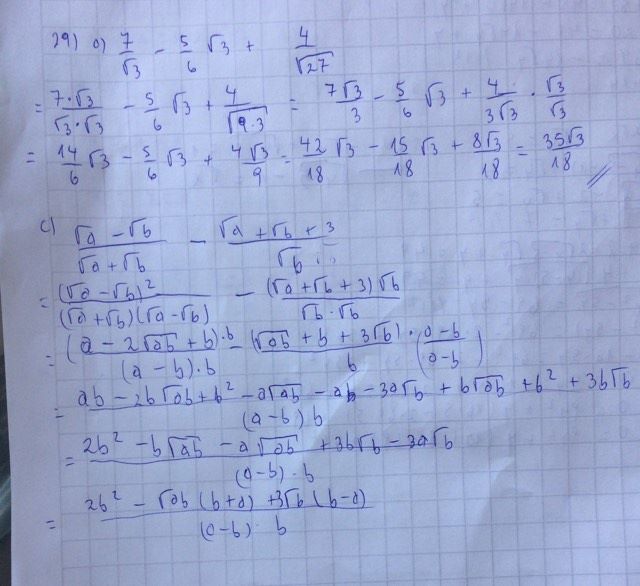 29) a) 7/√3 - 5/6 √3 + 4/√27
= 7·√3/√3·√3 - 5/6 √3 + 4/√9·3 = 7√3/3 - 5/6 √3 + 4/3√3 · √3/√3
= 14/6 √3 - 5/6 √3 + 4√3/9 = 42/18 √3 - 15/18 √3 + 8√3/18 = 35√3/18
c) √a - √b/√a + √b - √a + √b + 3/√b
= (√a - √b)²/(√a + √b)(√a - √b) - (√a + √b + 3)√b/√b · √b
= (a - 2√ab + b)·b/(a - b)·b - (√ab + b + 3√b)/b · (a - b/a - b)
= ab - 2b√ab + b² - a√ab - ab - 3a√b + b√ab + b² + 3b√b/(a - b) b
= 2b² - b√ab - a√ab + 3b√b - 3a√b/(a - b)·b
= 2b² - √ab (b + a) + 3√b (b - a)/(a - b)·b